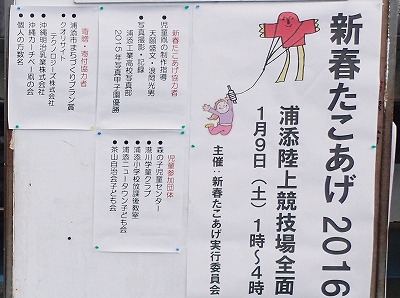 新春たこあげ 2016
浦添陸上競技場全面
1月9日（土）1時～4時
主催：新春たこあげ実行委員会
新春たこあげ協力者
児童凧の制作指導
天願盛文・浪岡光男
写真撮影・記録
浦添工業高校写真部
2015年写真甲子園優勝
寄贈・寄付協力者
●浦添市まちづくりプラン賞
●クオリサイト
テクノロジーズ株式会社
●沖縄明治乳業株式会社
●沖縄カーチベー凧の会
●個人の方数名
児童参加団体
●森の子児童センター
●港川学童クラブ
●浦添小学校放課後教室
●浦添ニュータウン子ども会
●茶山自治会子ども会